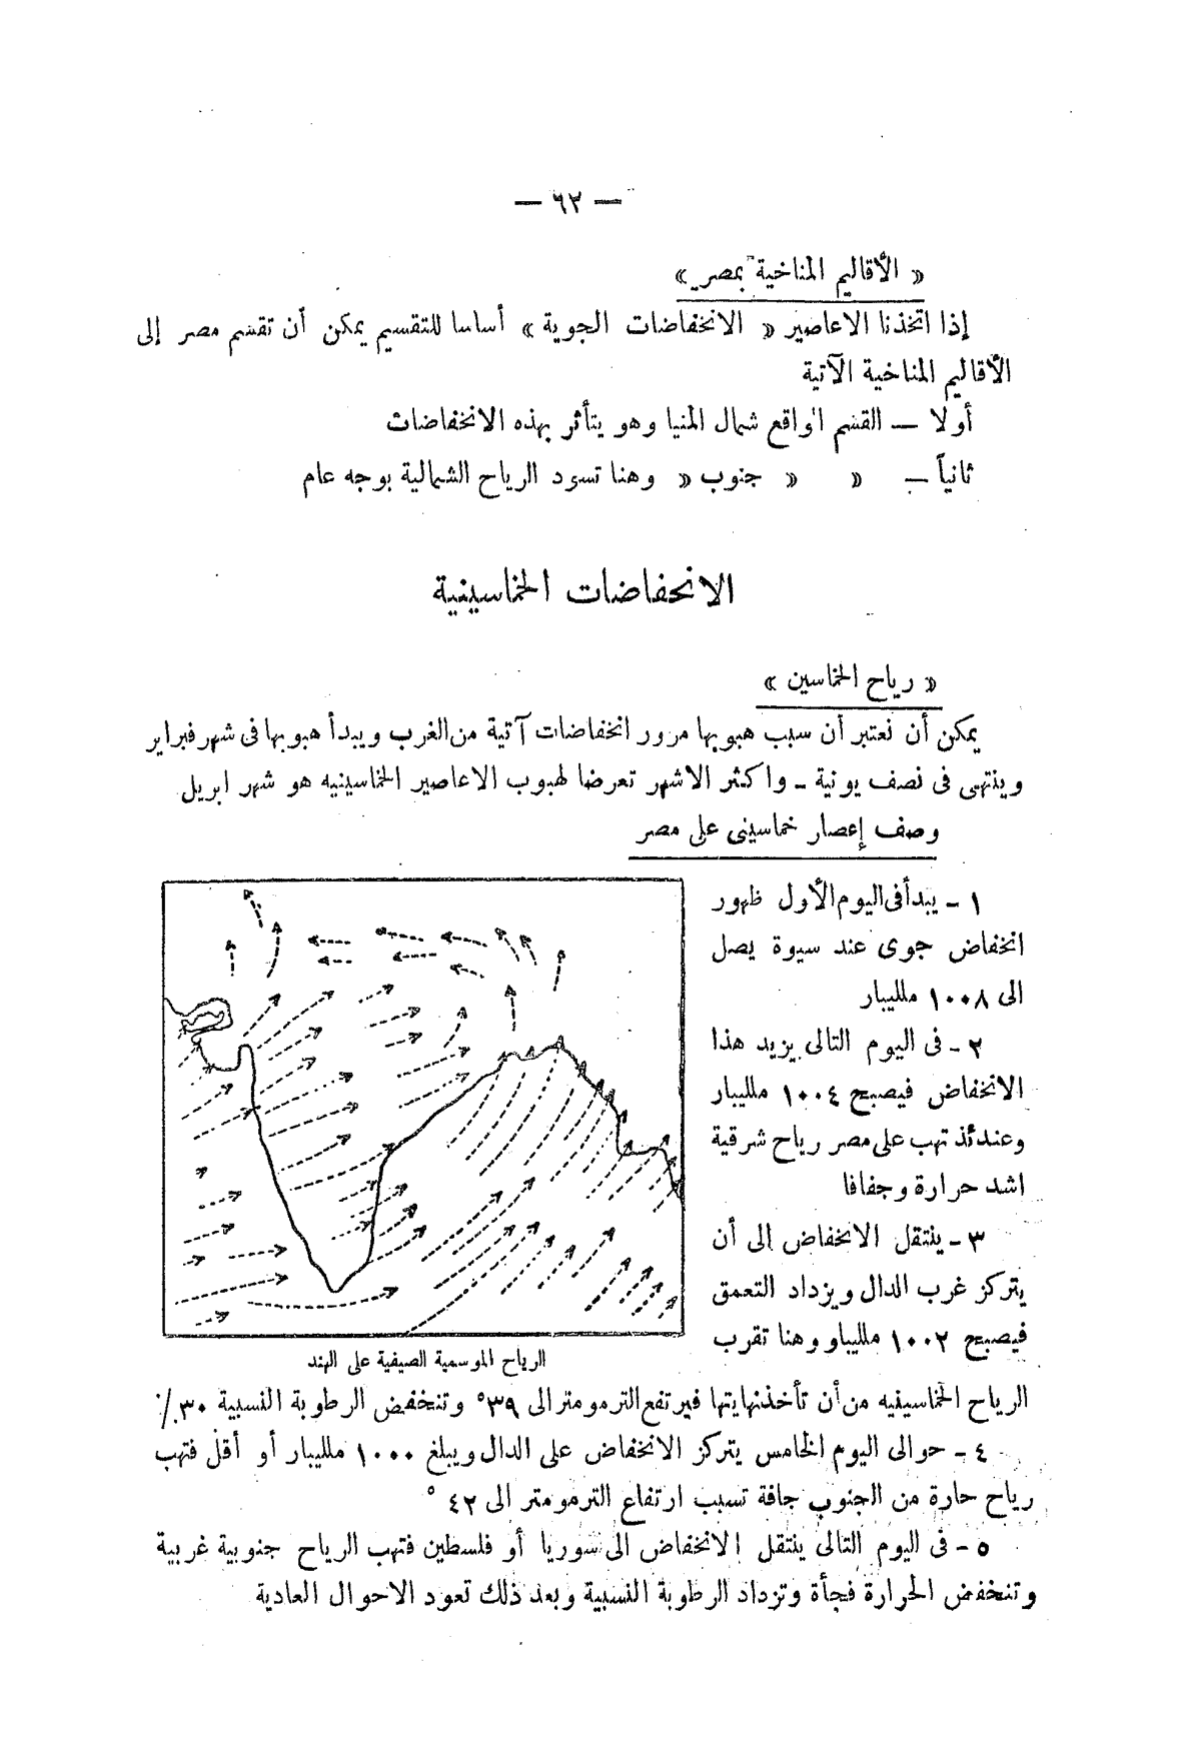 — ٦٢ —
« الأقاليم المناخية بمصر »
إذا اتخذنا الاعاصير « الانخفاضات الجوية » أساسا للتقسيم يمكن أن تقسم مصر إلى
الأقاليم المناخية الآتية
أولا — القسم الواقع شمال المنيا وهو يتأثر بهذه الانخفاضات
ثانياً — « « جنوب « وهنا تسود الرياح الشمالية بوجه عام
الانخفاضات الخماسينية
« رياح الخماسين »
يمكن أن نعتبر أن سبب هبوبها مرور انخفاضات آتية من الغرب ويبدأ هبوبها فى شهر فبراير
وينتهى فى نصف يونية - واكثر الاشهر تعرضا لهبوب الاعاصير الخماسينيه هو شهر ابريل
وصف إعصار خماسينى على مصر
١ - يبدأ فى اليوم الأول ظهور
انخفاض جوى عند سيوة يصل
الى ١٠٠٨ ملليبار
٢ - فى اليوم التالى يزيد هذا
الانخفاض فيصبح ١٠٠٤ ملليبار
وعندئذ تهب على مصر رياح شرقية
اشد حرارة وجفافا
٣ - ينتقل الانخفاض الى أن
يتركز غرب الدال ويزداد التعمق
فيصبح ١٠٠٢ ملليباو وهنا تقرب
الرياح الموسمية الصيفية على الهند
الرياح الخماسينيه من أن تأخذ نهايتها فيرتفع الترمومتر الى ٣٩° وتنخفض الرطوبة النسبية ٣٠٪
٤ - حوالى اليوم الخامس يتركز الانخفاض على الدال ويبلغ ١٠٠٠ ملليبار أو أقل فتهب
رياح حارة من الجنوب جافة تسبب ارتفاع الترمومتر الى ٤٢°
٥ - فى اليوم التالى ينتقل الانخفاض الى سوريا أو فلسطين فتهب الرياح جنوبية غربية
وتنخفض الحرارة فجأة وتزداد الرطوبة النسبية وبعد ذلك تعود الاحوال العادية